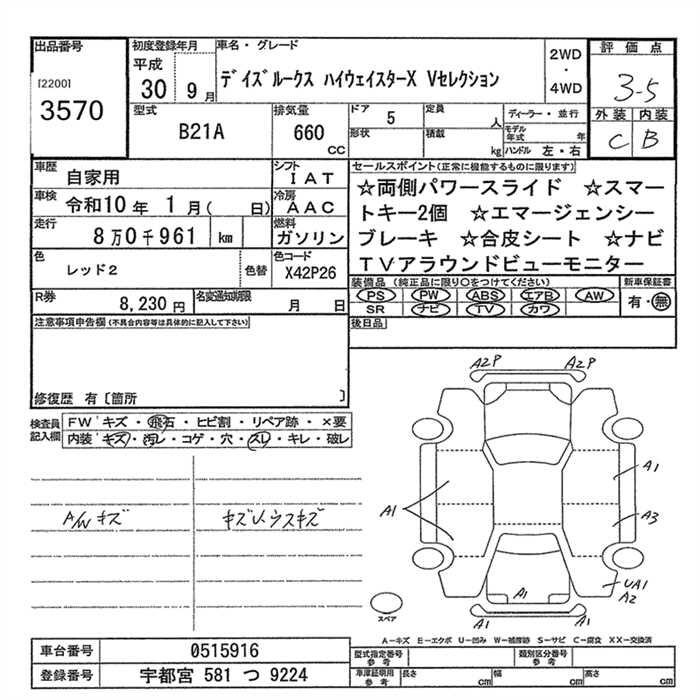 出品番号
[2200]
3570
初度登録年月
平成
30 9月
車名・グレード
デイズルークス ハイウェイスターX Vセレクション
2WD
・
4WD
評価点
3-5
外装 内装
C B
型式
B21A
排気量
660
CC
ドア 5
定員
人
形状
積載
kg
ディーラー・並行
モデル年式 年
ハンドル 左・右
車歴
自家用
シフト
IAT
車検
令和10年 1月( 日)
冷房
AAC
走行
8万0千961 km
燃料
ガソリン
色
レッド2
色替
色コード
X42P26
R券
8,230円
名変通知期限
月 日
セールスポイント(正常に機能するものに限ります)
☆両側パワースライド ☆スマー
トキー2個 ☆エマージェンシー
ブレーキ ☆合皮シート ☆ナビ
TVアラウンドビューモニター
装備品 (純正品に限り〇をつけてください)
PS PW ABS エアB AW
SR ナビ TV カワ
新車保証書
有・無
後日品
注意事項申告欄(不具合内容等は具体的に記入して下さい)
修復歴 有〔箇所 〕
検査員
記入欄
FW キズ・飛石・ヒビ割・リペア跡・×要
内装 キズ・汚レ・コゲ・穴・スレ・キレ・破レ
A/W キズ
キズい、ウスキズ
A2P A2P
A1
A1
A3
A1
UA1
A2
A1 A1
スペア
A-キズ E-エクボ U-凹み W-補修跡 S-サビ C-腐食 XX-交換済
車台番号
0515916
登録番号
宇都宮 581 つ 9224
型式指定番号
参考
類別区分番号
参考
車庫証明用
参考
長さ cm
幅 cm
高さ cm